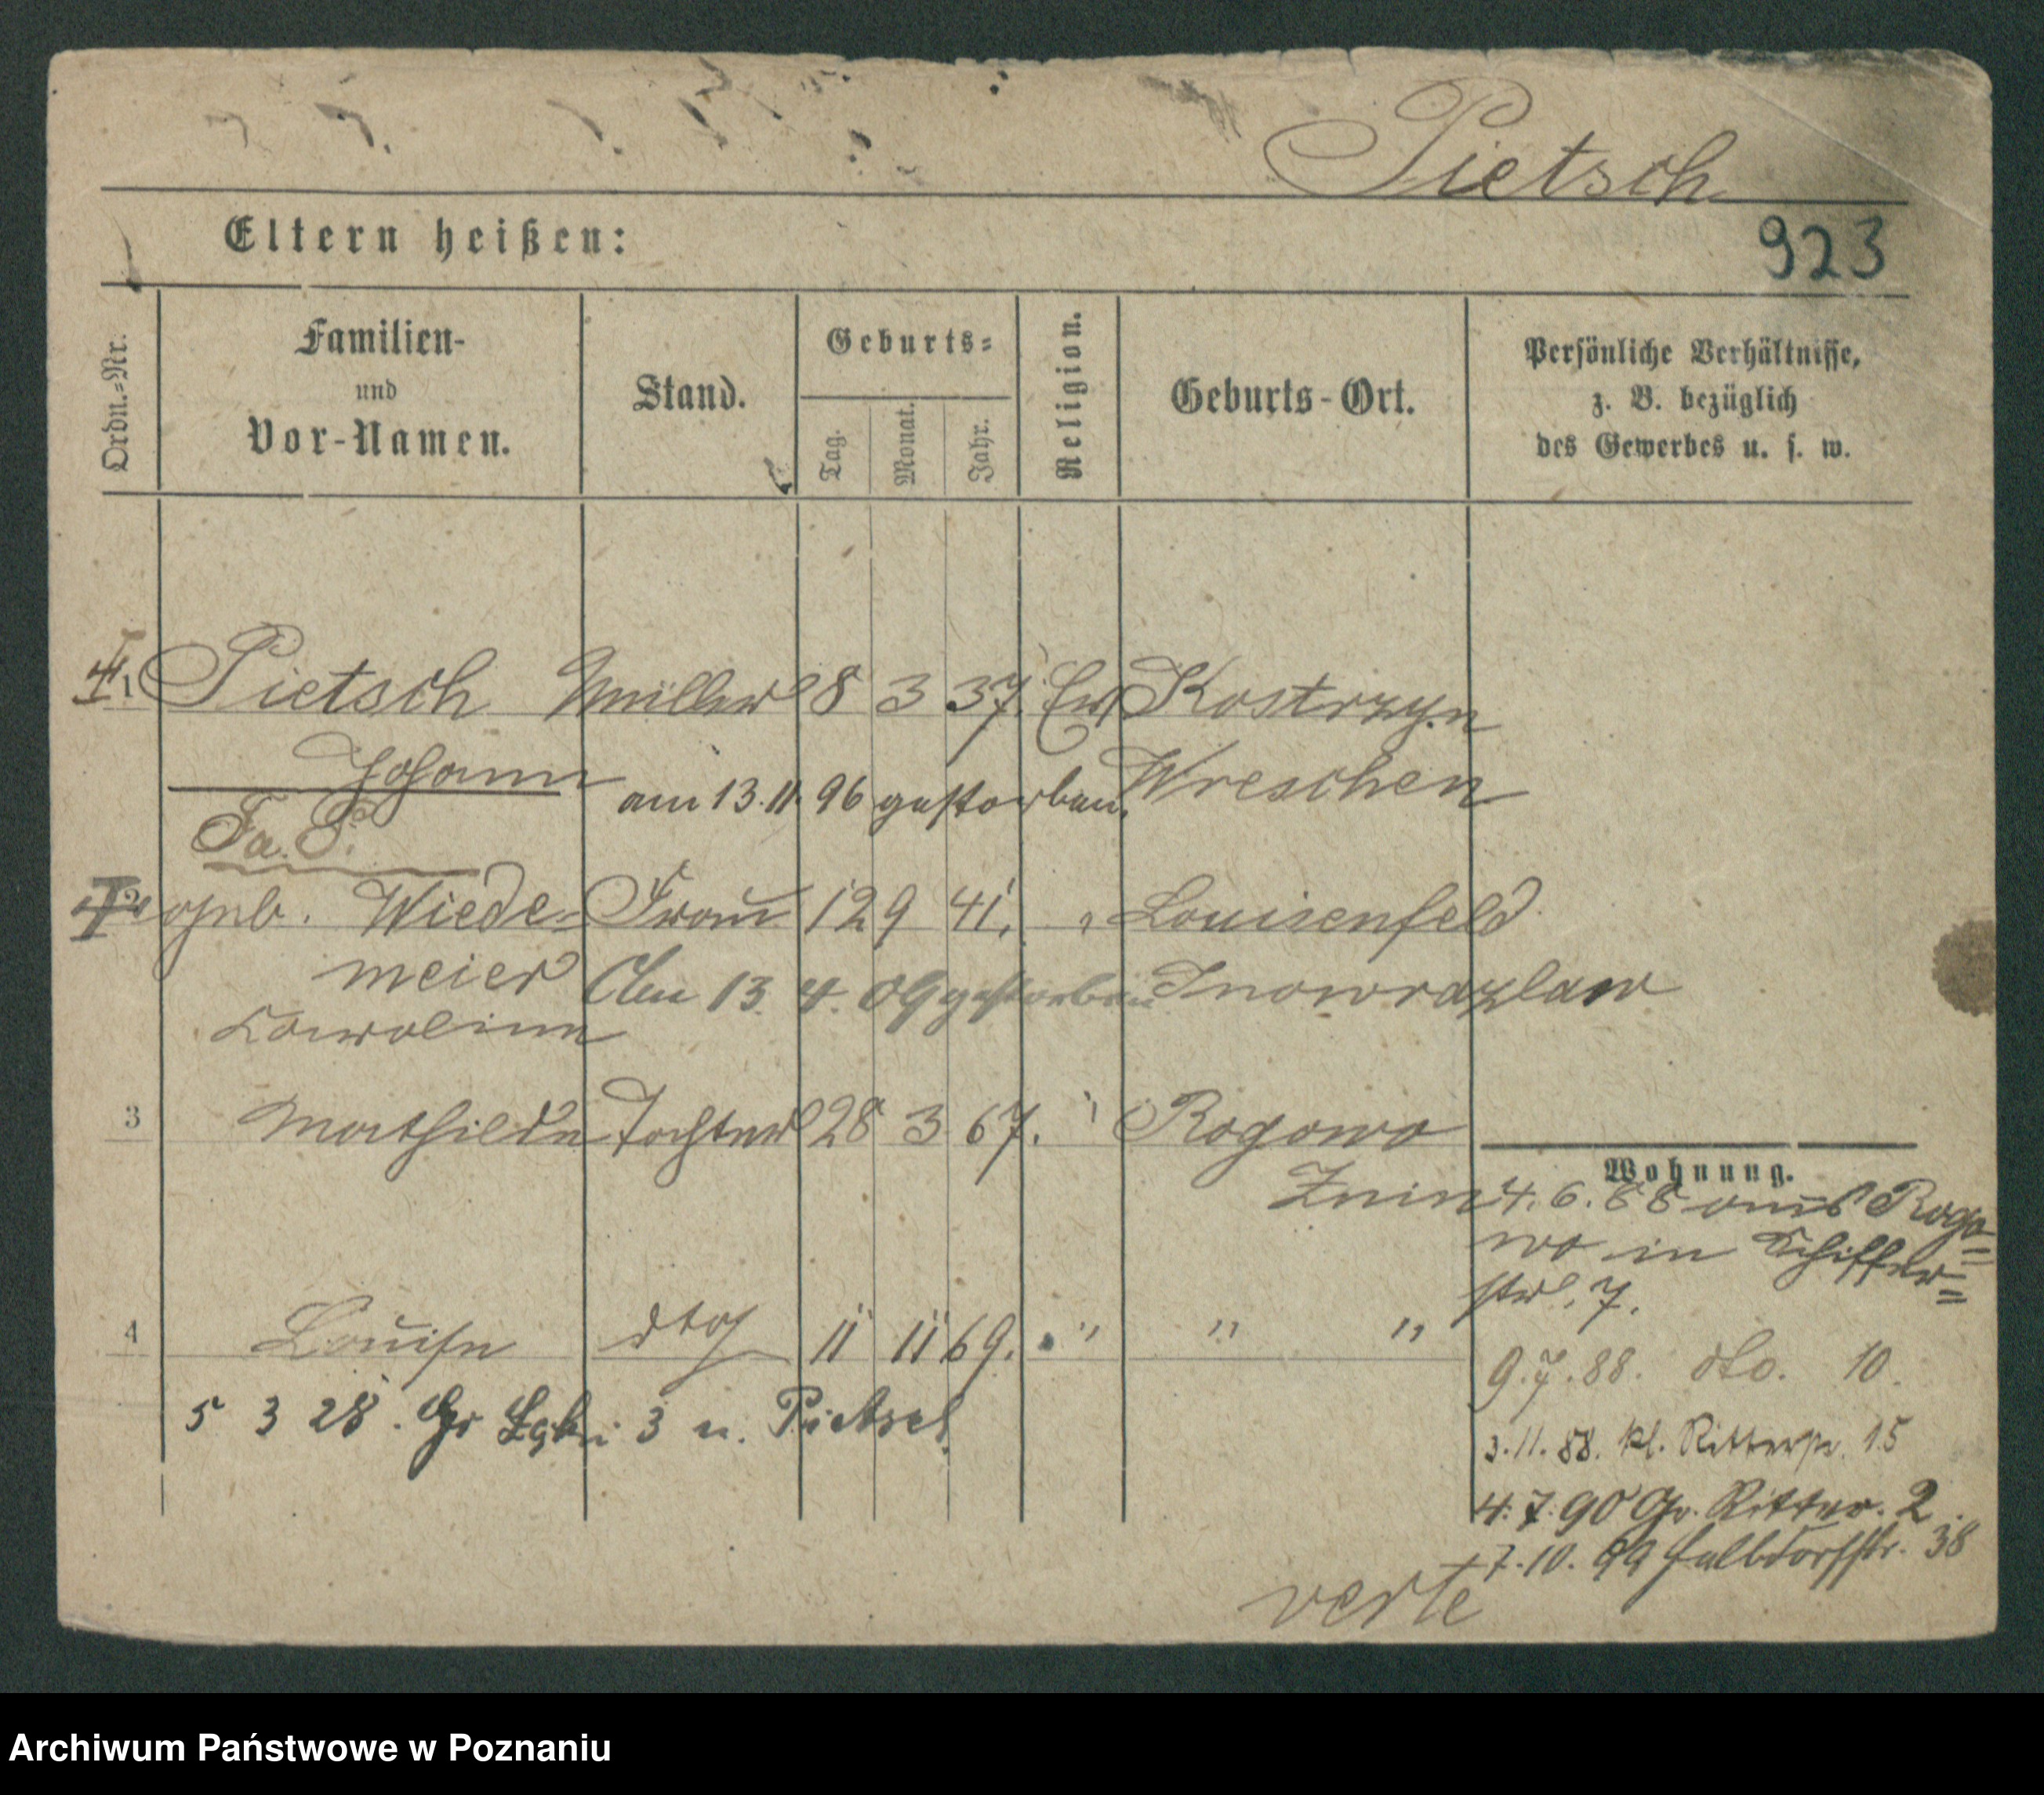 Pietsch
Eltern heißen:
923
Ordn.=Nr.
Familien-
und
Vor-Namen.
Stand.
Geburts=
Tag.
Monat.
Jahr.
Religion.
Geburts-Ort.
Persönliche Verhältnisse,
z. B. bezüglich
des Gewerbes u. s. w.
1 Pietsch Müller 8 3 37. Ev Kostrzyn
Johann am 13.11.96 gestorben. Wreschen
Fa. P.
2 geb. Wiede- Frau 12 9 41. " Louisenfeld
meier Am 13. 4. 09 gestorben Inowrazlaw
Karoline
3 Mathilde Tochter 28 3 67. " Rogowo
Znin
Wohnung.
4.6.88 aus Rogo=
wo in Schiffer=
str. 7.
4 Louise dto 11 11 69. " " "
9.7.88. dto. 10.
5 3 28. Gr 3 u. Pietsch
3.11.88. kl. Ritterstr. 15
4.7.90 Gr. Ritter. 2.
7.10.99 Halbdorfstr. 38
verte
Archiwum Państwowe w Poznaniu